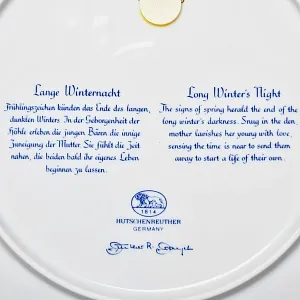 Lange Winternacht
Frühlingszeichen künden das Ende des langen,
dunklen Winters an. In der Geborgenheit der
Höhle erleben die jungen Bären die innige
Zuneigung der Mutter. Sie fühlt die Zeit
nahen, die beiden bald ihr eigenes Leben
beginnen zu lassen.
Long Winter's Night
The signs of spring herald the end of the
long winter's darkness. Snug in the den,
mother lavishes her young with love,
sensing the time is near to send them
away to start a life of their own.
1814
HUTSCHENREUTHER
GERMANY